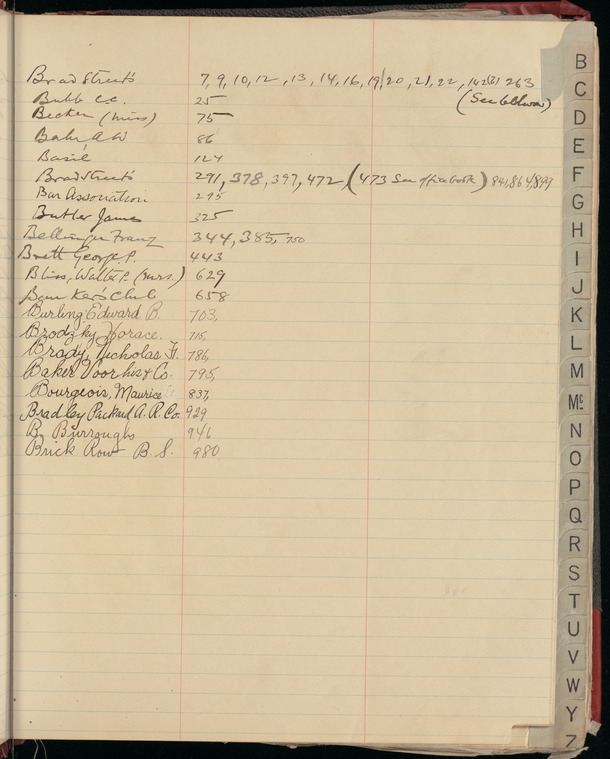 Bradstreets 7, 9, 10, 12, 13, 14, 16, 19, 20, 21, 22, 142(2) 263
Bubb C.C. 25 (See below)
Becker (Miss) 75
Bahr A W 86
Basil 124
Bradstreets 291, 378, 397, 472, (473 See office book) 841, 864, 899
Bar Association 295
Butler James 325
Bellinger Franz 344, 385, 750
Brett George P. 443
Bliss, Walter P. (Mrs.) 629
Bankers Club 658
Burling Edward B. 703,
Brodzky Horace. 715,
Brady, Nicholas F. 786,
Baker Voorhis & Co. 795,
Bourgeois, Maurice 837,
Bradley Packard A. R. Co. 929
B. Burroughs 946
Brick Row B. S. 980
B
C
D
E
F
G
H
I
J
K
L
M
Mc
N
O
P
Q
R
S
T
U
V
W
Y
Z